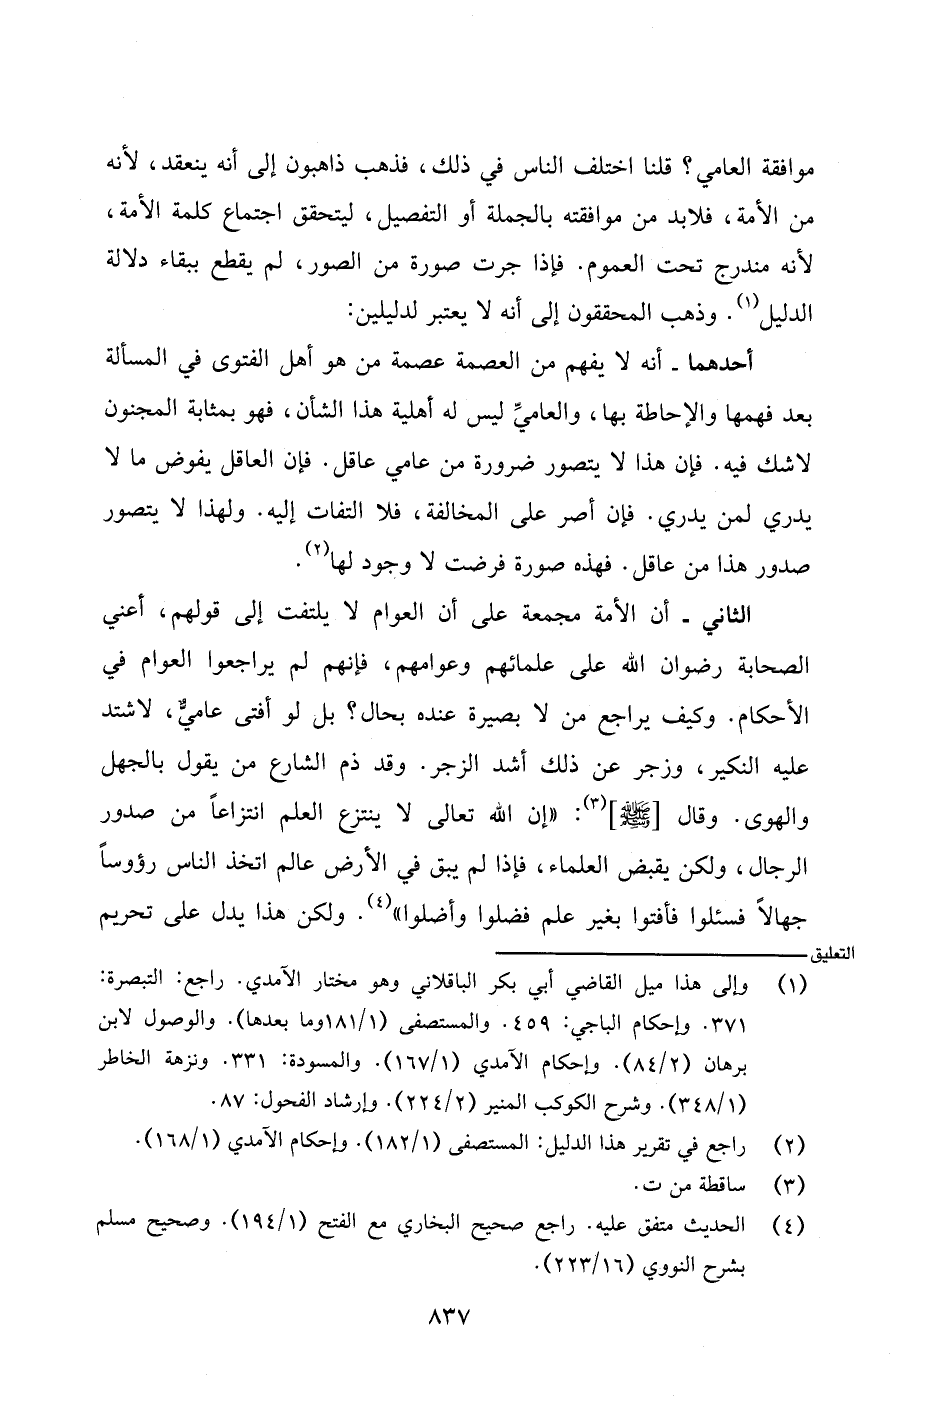 موافقة العامي؟ قلنا اختلف الناس في ذلك، فذهب ذاهبون إلى أنه ينعقد، لأنه
من الأمة، فلابد من موافقته بالجملة أو التفصيل، ليتحقق اجتماع كلمة الأمة،
لأنه مندرج تحت العموم. فإذا جرت صورة من الصور، لم يقطع ببقاء دلالة
الدليل(١). وذهب المحققون إلى أنه لا يعتبر لدليلين:
أحدهما ـ أنه لا يفهم من العصمة عصمة من هو أهل الفتوى في المسألة
بعد فهمها والإحاطة بها، والعاميِّ ليس له أهلية هذا الشأن، فهو بمثابة المجنون
لاشك فيه. فإن هذا لا يتصور ضرورة من عامي عاقل. فإن العاقل يفوض ما لا
يدري لمن يدري. فإن أصر على المخالفة، فلا التفات إليه. ولهذا لا يتصور
صدور هذا من عاقل. فهذه صورة فرضت لا وجود لها(٢).
الثاني ـ أن الأمة مجمعة على أن العوام لا يلتفت إلى قولهم، أعني
الصحابة رضوان الله على علمائهم وعوامهم، فإنهم لم يراجعوا العوام في
الأحكام. وكيف يراجع من لا بصيرة عنده بحال؟ بل لو أفتى عاميٌّ، لاشتد
عليه النكير، وزجر عن ذلك أشد الزجر. وقد ذم الشارع من يقول بالجهل
والهوى. وقال [ﷺ](٣): «إن الله تعالى لا ينتزع العلم انتزاعاً من صدور
الرجال، ولكن يقبض العلماء، فإذا لم يبق في الأرض عالم اتخذ الناس رؤوساً
جهالاً فسئلوا فأفتوا بغير علم فضلوا وأضلوا»(٤). ولكن هذا يدل على تحريم
التعليق
(١) وإلى هذا ميل القاضي أبي بكر الباقلاني وهو مختار الآمدي. راجع: التبصرة:
٣٧١. وإحكام الباجي: ٤٥٩. والمستصفى (١٨١/١وما بعدها). والوصول لابن
برهان (٨٤/٢). وإحكام الآمدي (١٦٧/١). والمسودة: ٣٣١. ونزهة الخاطر
(٣٤٨/١). وشرح الكوكب المنير (٢٢٤/٢). وإرشاد الفحول: ٨٧.
(٢) راجع في تقرير هذا الدليل: المستصفى (١٨٢/١). وإحكام الآمدي (١٦٨/١).
(٣) ساقطة من ت.
(٤) الحديث متفق عليه. راجع صحيح البخاري مع الفتح (١٩٤/١). وصحيح مسلم
بشرح النووي (٢٢٣/١٦).
٨٣٧